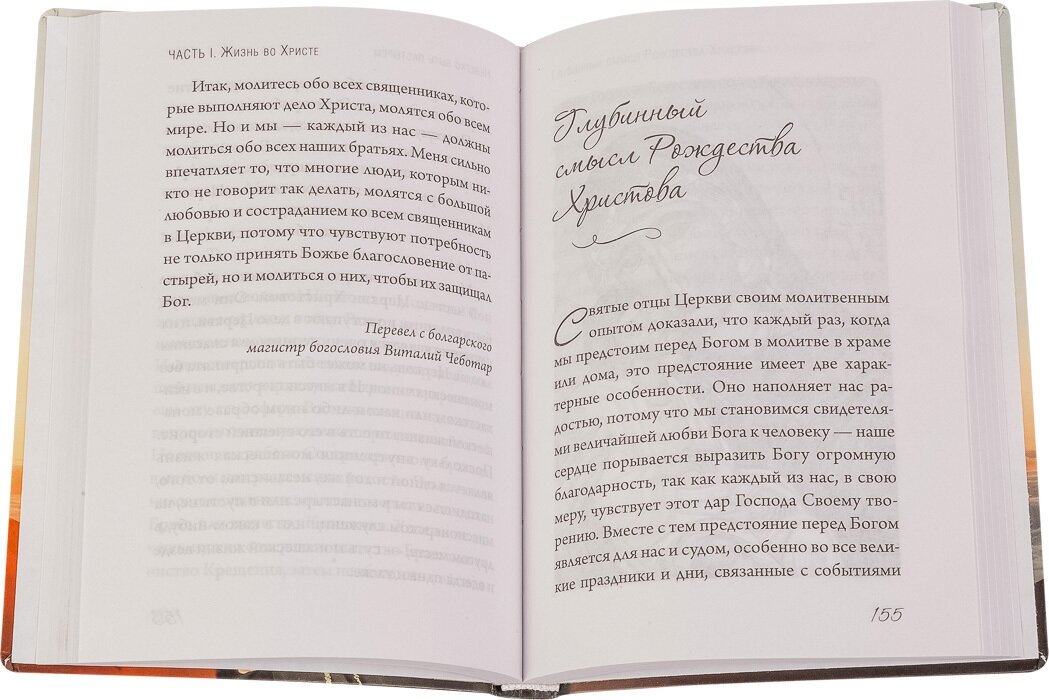 ЧАСТЬ I. Жизнь во Христе
Итак, молитесь обо всех священниках, кото-
рые выполняют дело Христа, молятся обо всем
мире. Но и мы — каждый из нас — должны
молиться обо всех наших братьях. Меня сильно
впечатляет то, что многие люди, которым ни-
кто не говорит так делать, молятся с большой
любовью и состраданием ко всем священникам
в Церкви, потому что чувствуют потребность
не только принять Божье благословение от па-
стырей, но и молиться о них, чтобы их защищал
Бог.
Перевел с болгарского
магистр богословия Виталий Чеботар
Глубинный
смысл Рождества
Христова
Святые отцы Церкви своим молитвенным
опытом доказали, что каждый раз, когда
мы предстоим перед Богом в молитве в храме
или дома, это предстояние имеет две харак-
терные особенности. Оно наполняет нас ра-
достью, потому что мы становимся свидетеля-
ми величайшей любви Бога к человеку — наше
сердце порывается выразить Богу огромную
благодарность, так как каждый из нас, в свою
меру, чувствует этот дар Господа Своему тво-
рению. Вместе с тем предстояние перед Богом
является для нас и судом, особенно во все вели-
кие праздники и дни, связанные с событиями
155